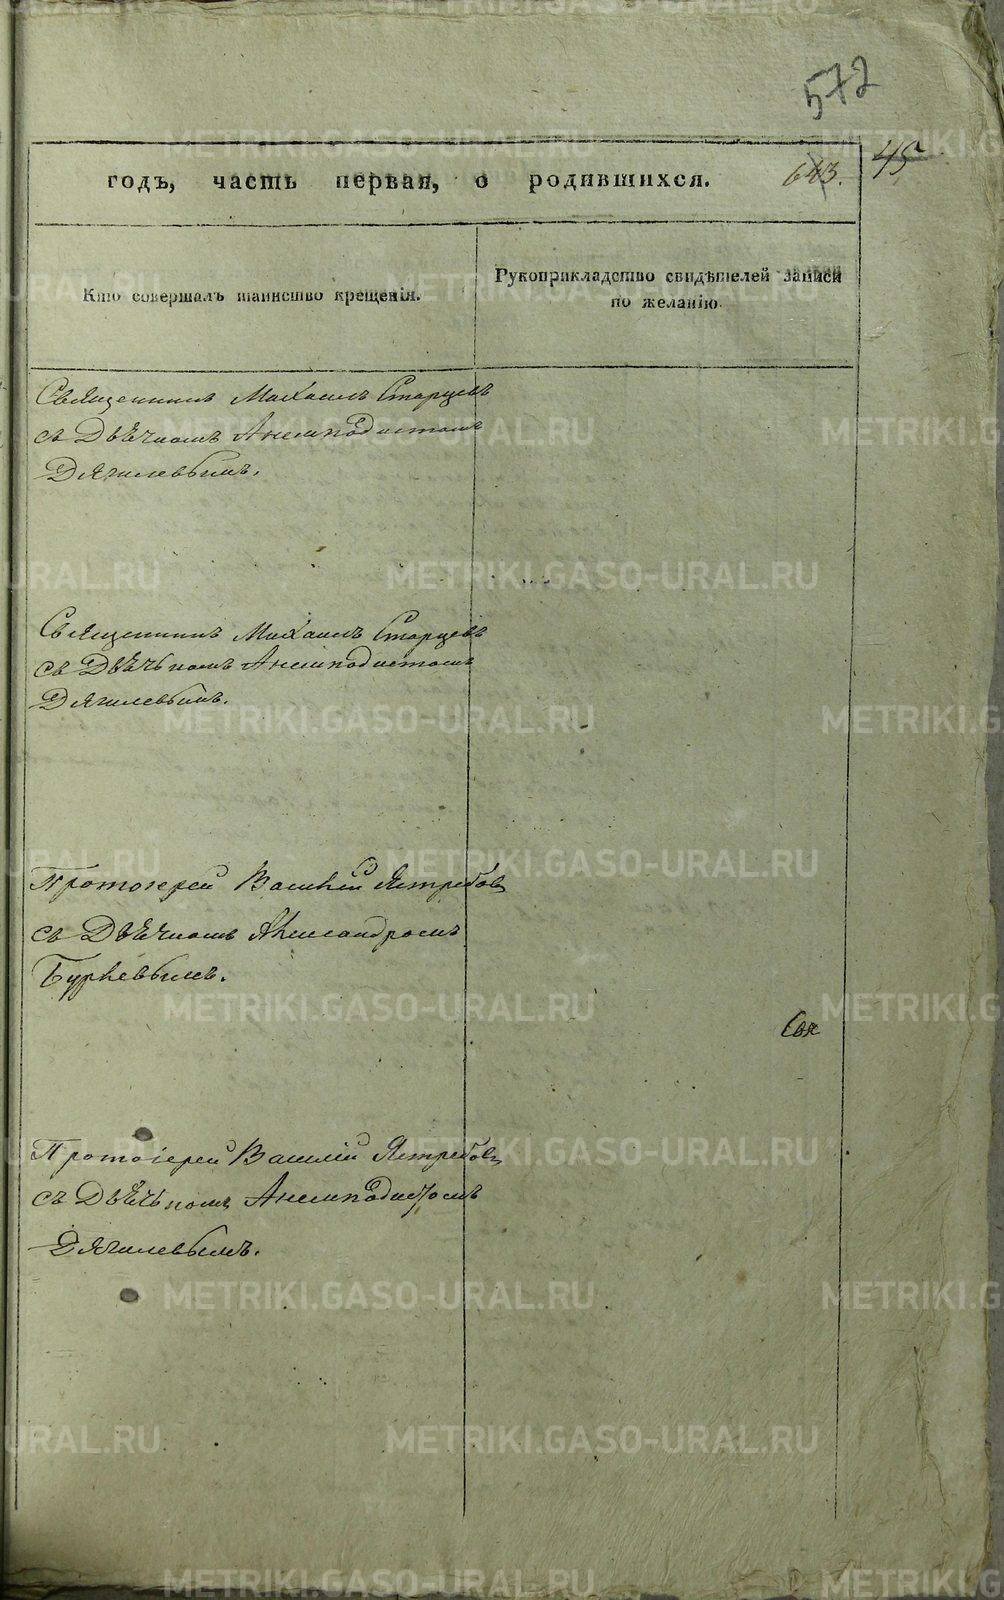 572
годъ, часть первая, о родившихся.
643.
45
Кто совершалъ таинство крещенія.
Рукоприкладство свидѣтелей записи
по желанію.
Священникъ Михаилъ Старцевъ
съ Дьячкомъ Анемподистомъ
Дягилевымъ.
Священникъ Михаилъ Старцевъ
съ Дьячькомъ Анемподистомъ
Дягилевымъ.
Протоіерей Василій Ястребовъ
съ Дьячкомъ Александромъ
Протоіерей Василій Ястребовъ
съ Дьячькомъ Анемподистомъ
Дягилевымъ.
METRIKI.GASO-URAL.RU